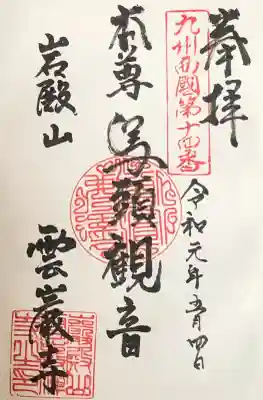 奉拝
九州西國第十四番
令和元年五月四日
本尊 馬頭観音
岩殿山
雲巌寺